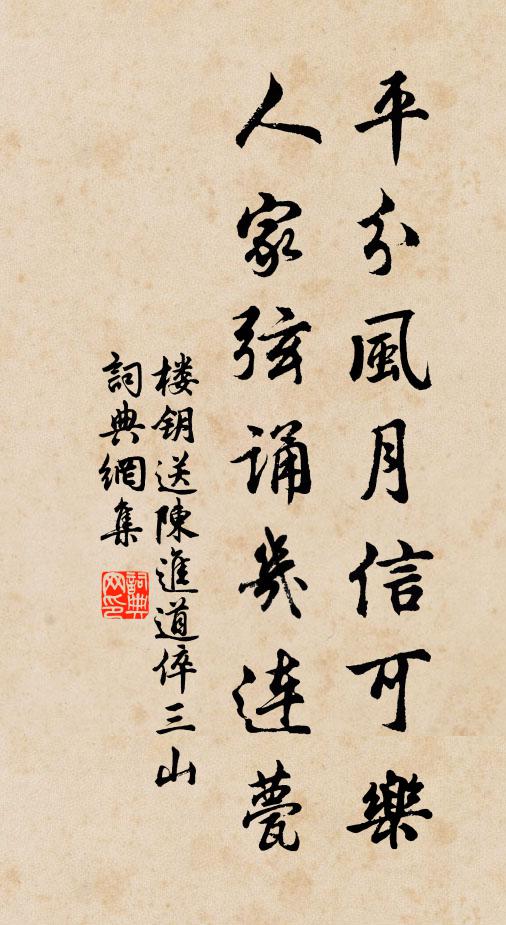 平分風月信可樂
人家弦诵幾连甍
楼钥送陳進道倅三山
詞典網集
詞典网印